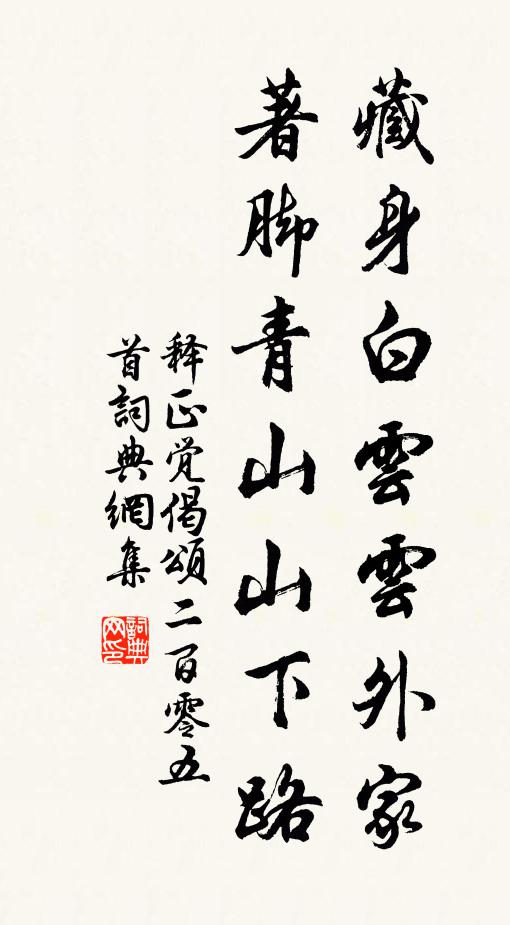 藏身白雲雲外家
著脚青山山下路
释正觉偈頌二百零五
首詞典網集
詞典网印